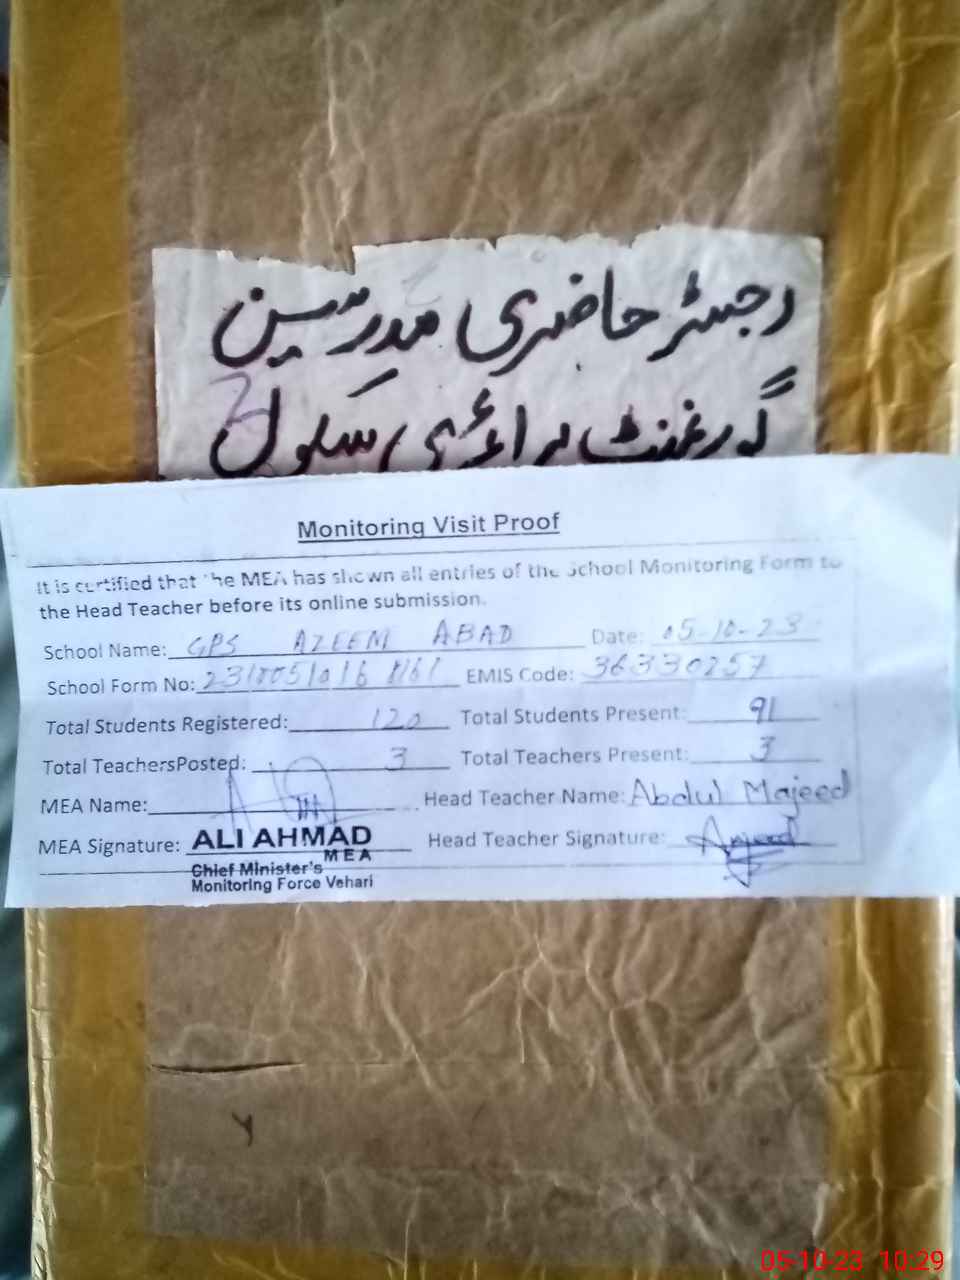 رجسٹر حاضری مدرسین
گورنمنٹ پرائمری سکول
Monitoring Visit Proof
It is certified that the MEA has shown all entries of the School Monitoring Form to
the Head Teacher before its online submission.
School Name: GPS AZEEM ABAD Date: 05-10-23
School Form No: EMIS Code: 36330257
Total Students Registered: 120 Total Students Present: 91
Total TeachersPosted: 3 Total Teachers Present: 3
MEA Name: Head Teacher Name: Abdul Majeed
MEA Signature: ALI AHMAD Head Teacher Signature: Amjeed
MEA
Chief Minister's
Monitoring Force Vehari
05-10-23 10:29